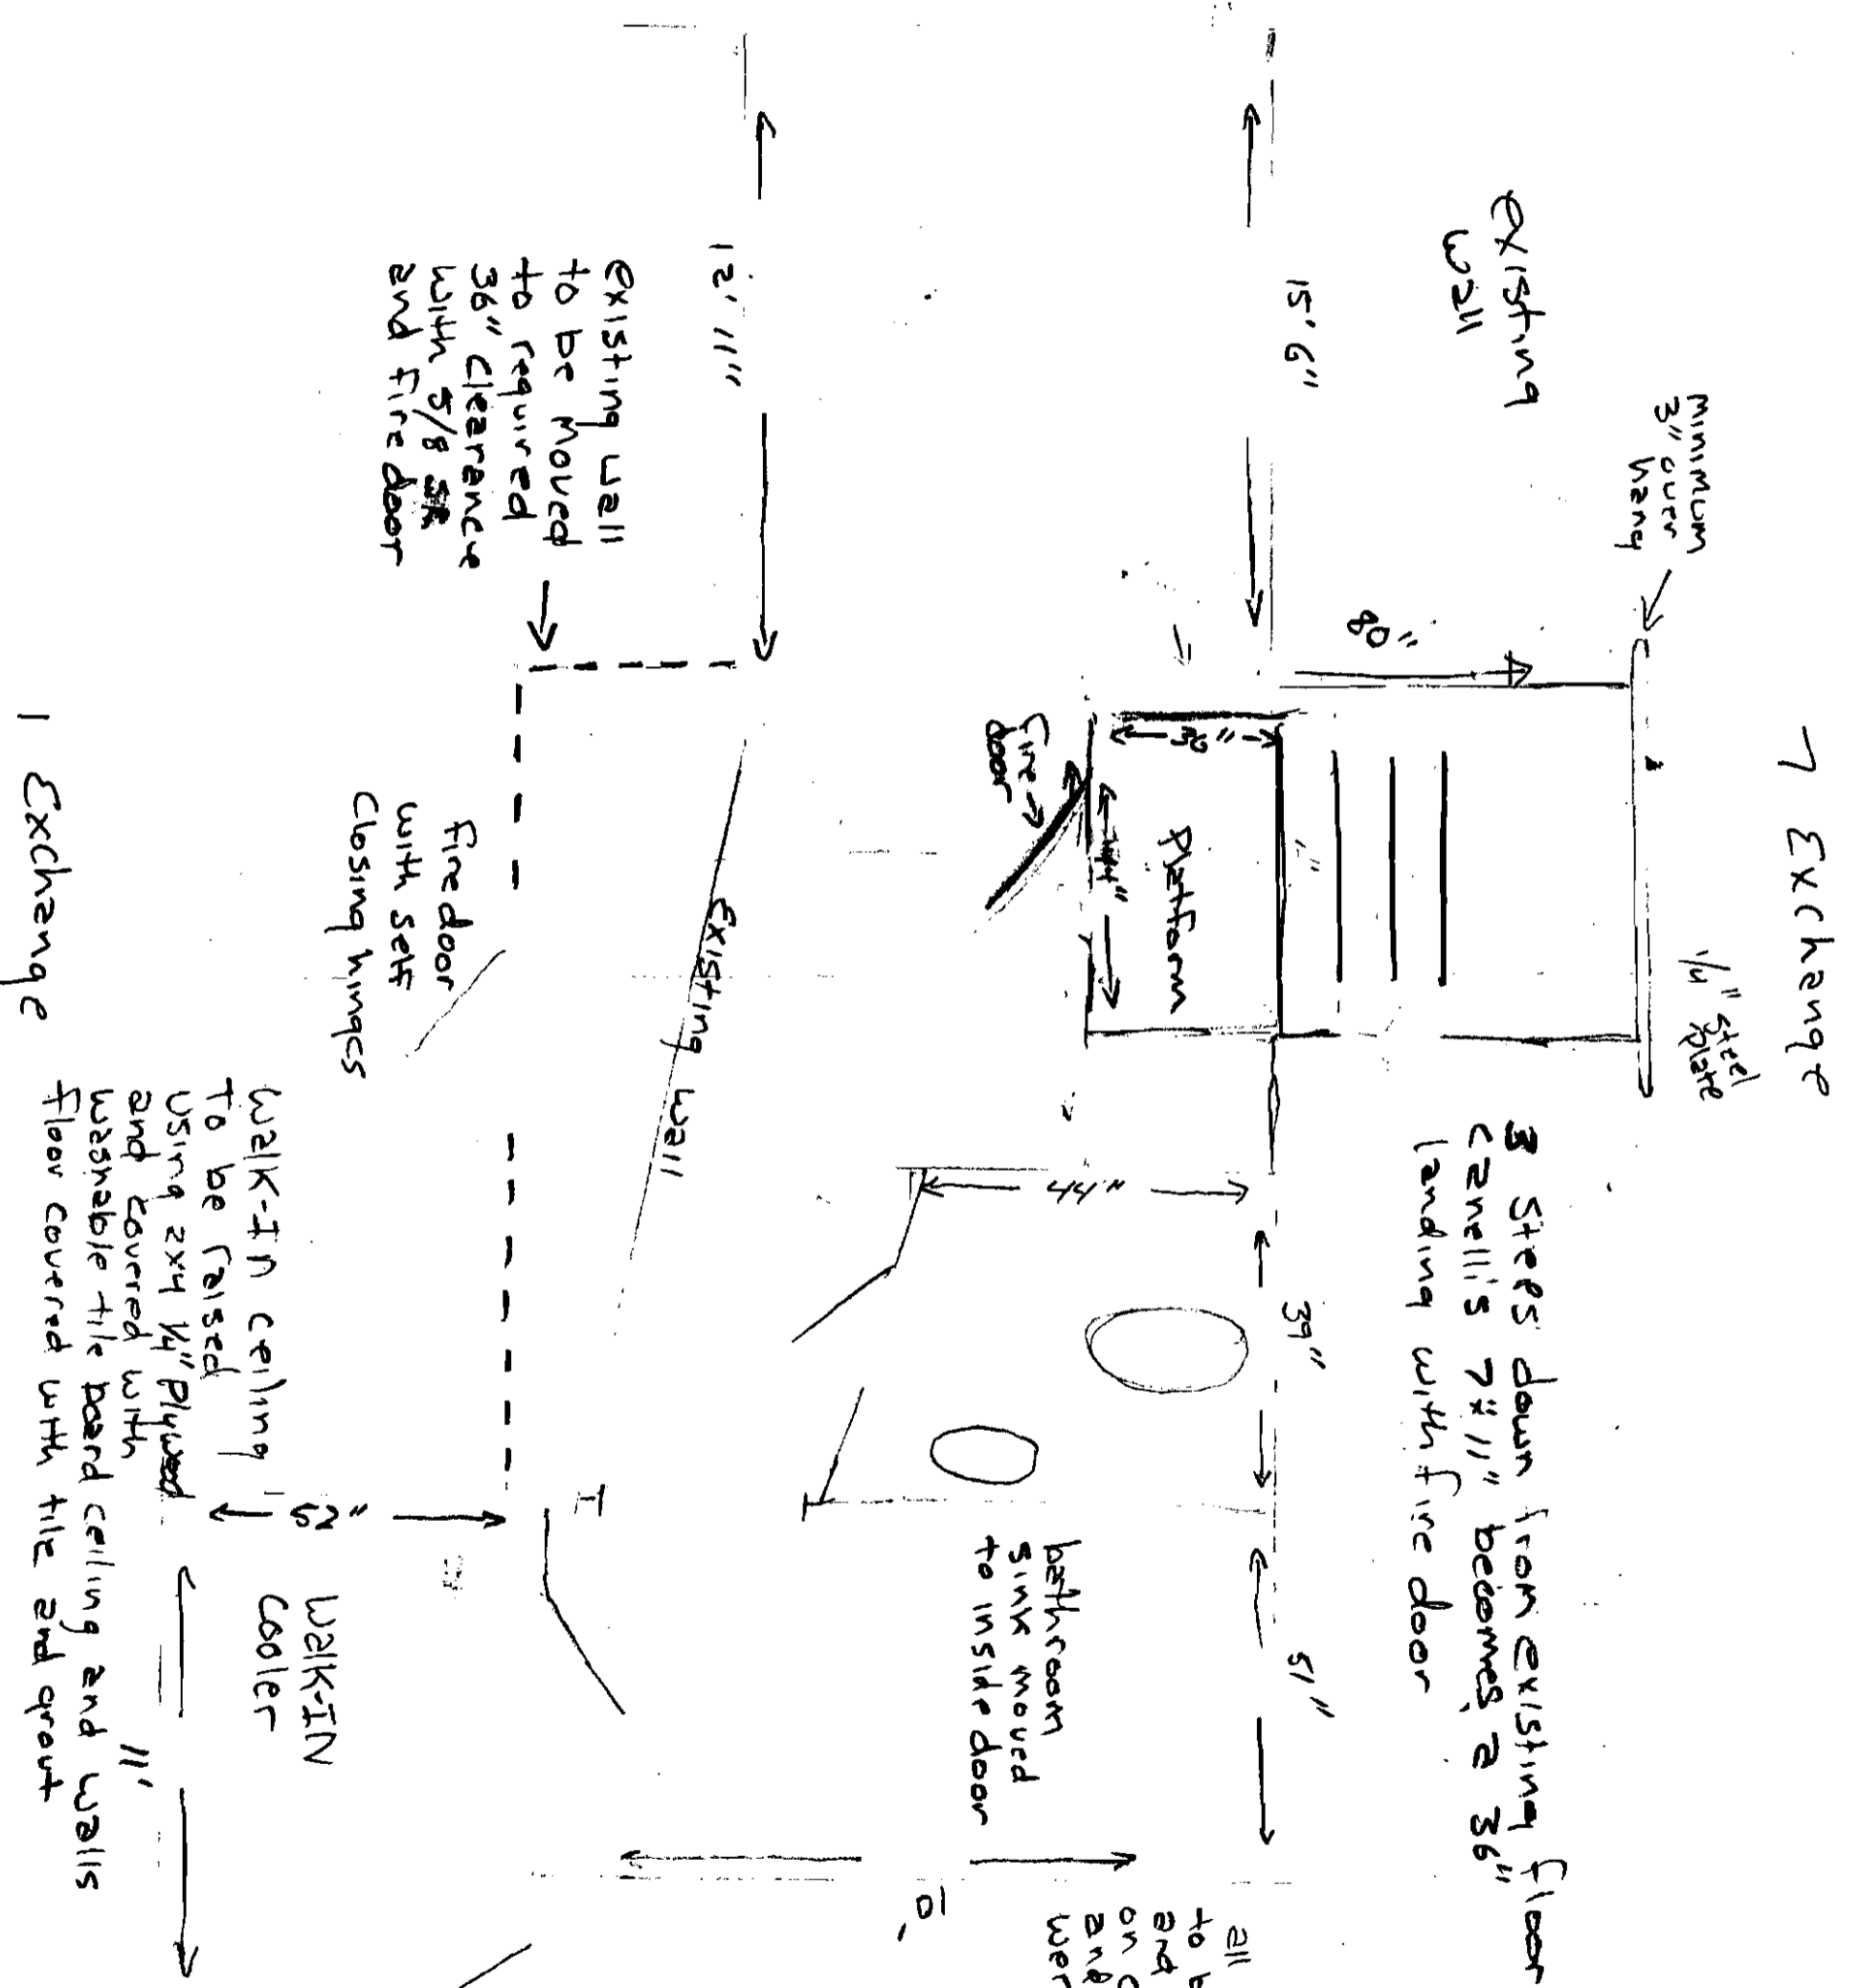 7 Exchange
1/4" steel
plate
minimum
3" over
hang
3 Steps down from existing floor
7"x11" becomes a 36"
landing with fire door
existing
wall
80"
15' 6"
39"
51"
Platform
44"
44"
fire
door
bathroom
sink moved
to inside door
all
to
and
on
and
10'
12' 11"
existing wall
existing wall
to be moved
to required
36" clearance
with 5/8
and fire door
fire door
with self
closing hinges
WALK-IN
cooler
walk-in ceiling
To be raised
using 2x4 1/4" plywood
and covered with
washable tile board ceiling and walls
floor covered with tile and grout
11'
1 Exchange